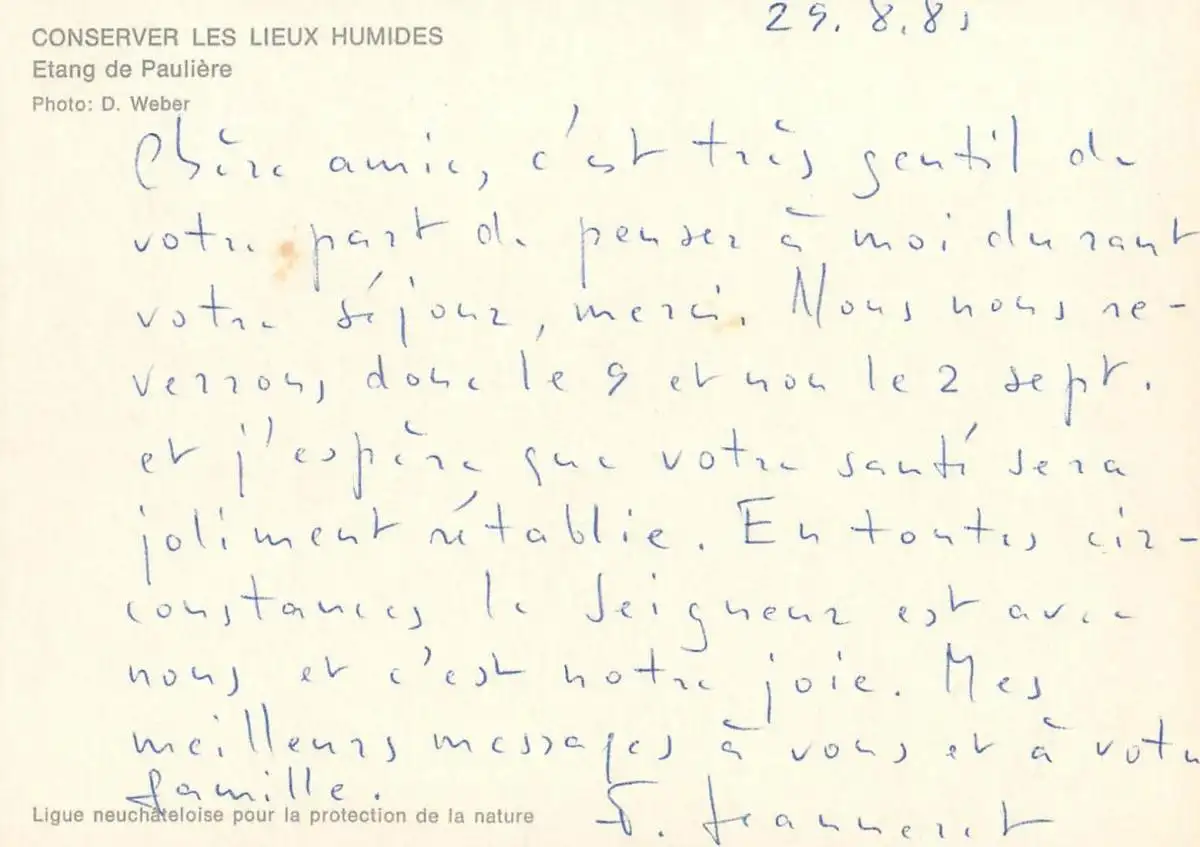 29. 8. 81
CONSERVER LES LIEUX HUMIDES
Etang de Paulière
Photo: D. Weber
Chère amie, c'est très gentil de
votre part de penser à moi durant
votre séjour, merci. Nous nous re-
verrons donc le 9 et non le 2 sept.
et j'espère que votre santé sera
joliment rétablie. En toutes cir-
constances le Seigneur est avec
nous et c'est notre joie. Mes
meilleurs messages à vous et à votre
famille.
Jeanneret
Ligue neuchâteloise pour la protection de la nature